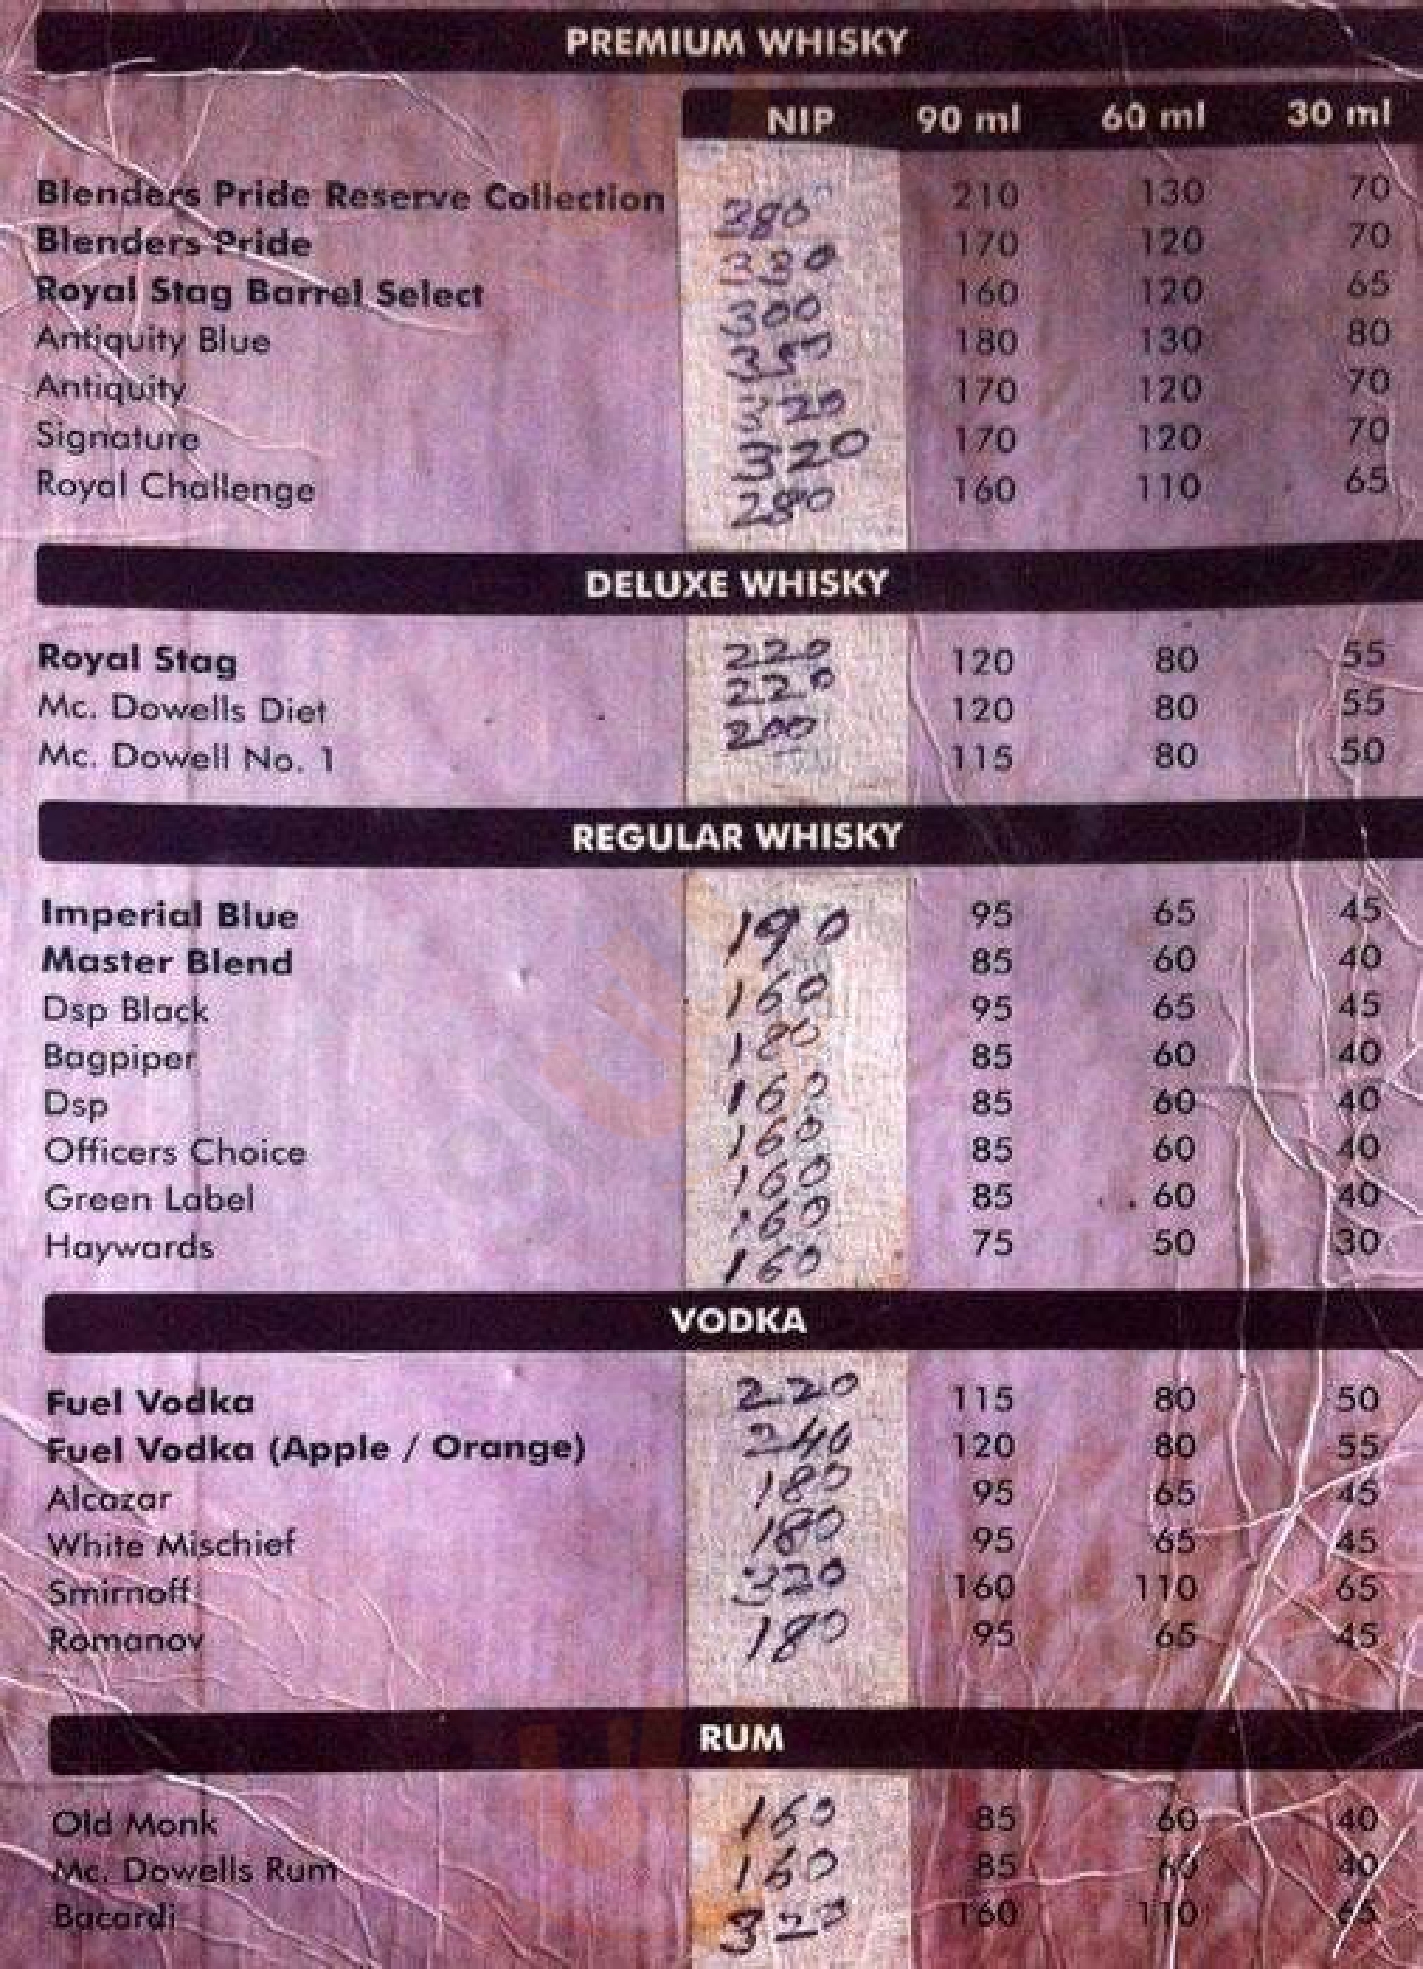 PREMIUM WHISKY
NIP 90 ml 60 ml 30 ml
Blenders Pride Reserve Collection 380 210 130 70
Blenders Pride 330 170 120 70
Royal Stag Barrel Select 300 160 120 65
Antiquity Blue 350 180 130 80
Antiquity 320 170 120 70
Signature 320 170 120 70
Royal Challenge 280 160 110 65
DELUXE WHISKY
Royal Stag 220 120 80 55
Mc. Dowells Diet 220 120 80 55
Mc. Dowell No. 1 200 115 80 50
REGULAR WHISKY
Imperial Blue 190 95 65 45
Master Blend 160 85 60 40
Dsp Black 180 95 65 45
Bagpiper 160 85 60 40
Dsp 160 85 60 40
Officers Choice 160 85 60 40
Green Label 160 85 60 40
Haywards 160 75 50 30
VODKA
Fuel Vodka 220 115 80 50
Fuel Vodka (Apple / Orange) 240 120 80 55
Alcazar 180 95 65 45
White Mischief 180 95 65 45
Smirnoff 320 160 110 65
Romanov 180 95 65 45
RUM
Old Monk 160 85 60 40
Mc. Dowells Rum 160 85 60 40
Bacardi 320 160 110 65